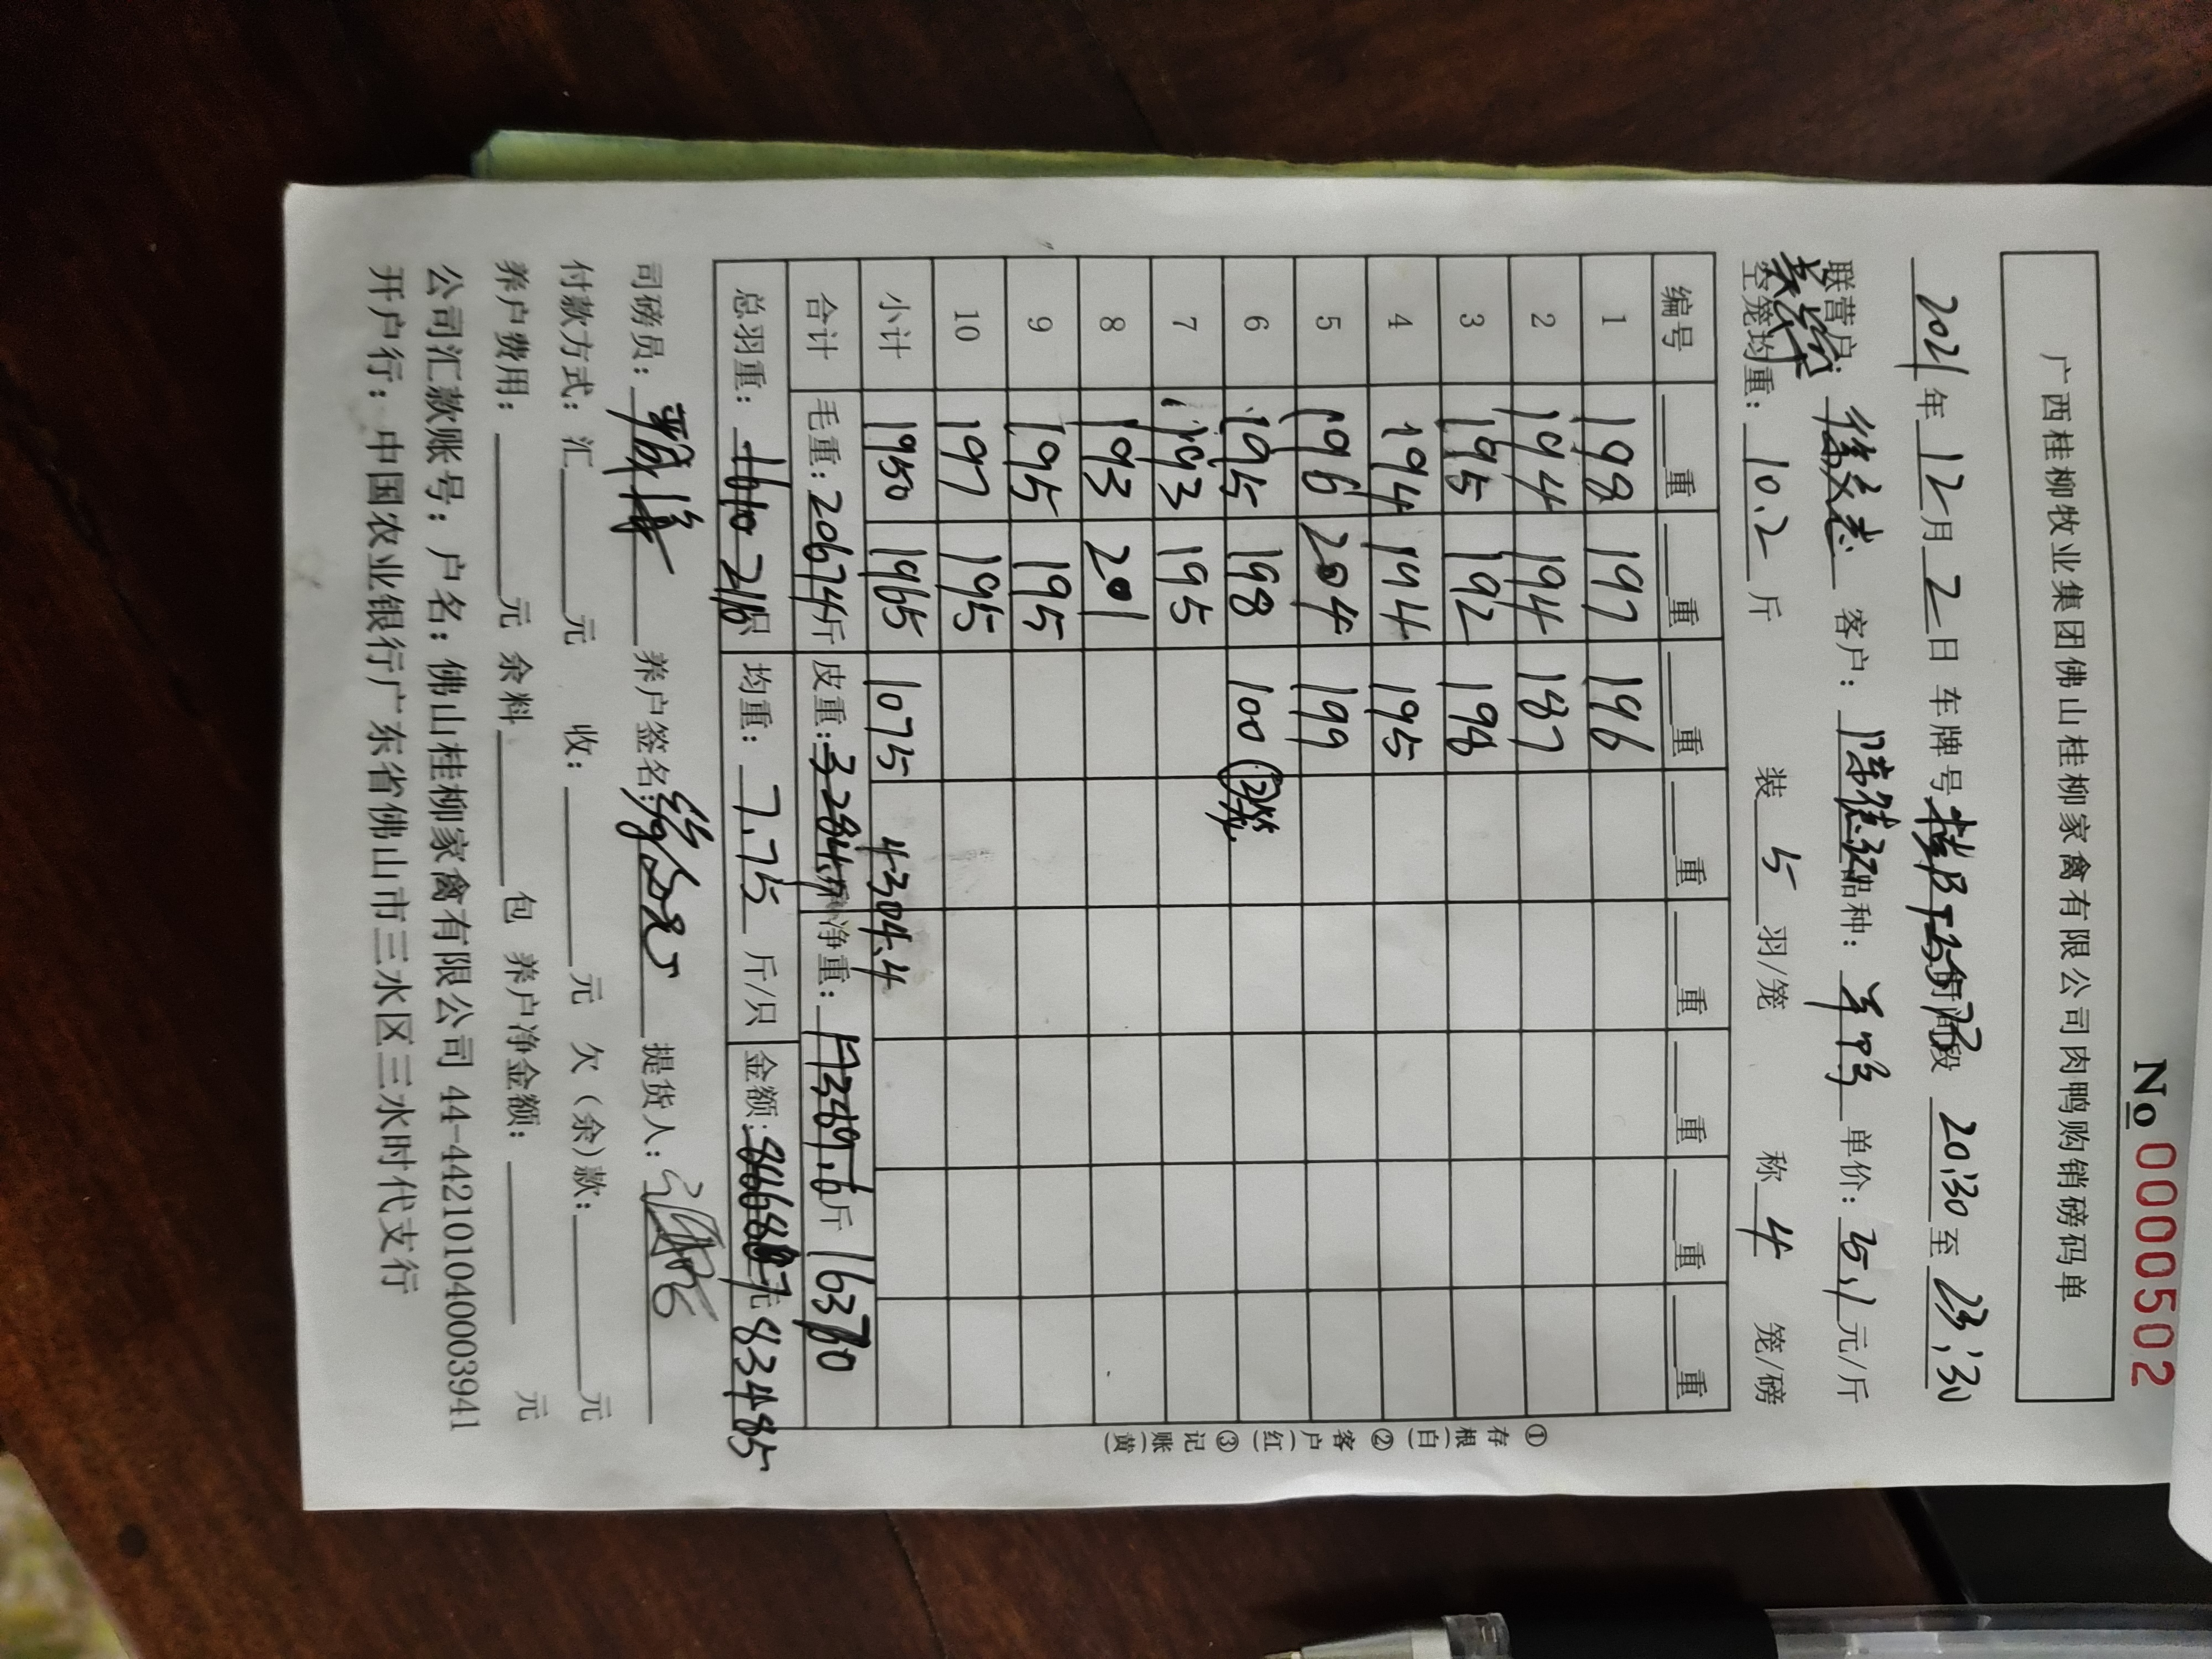 No 0000502
广西桂柳牧业集团佛山桂柳家禽有限公司肉鸭购销磅码单
2021年12月2日 车牌号 时间段 20:30至23:30
联营户: 客户: 品种: 单价: 5.1元/斤
空笼均重: 10.2斤 装5羽/笼 称4笼/磅
编号 重 重 重 重 重 重 重 重
1 198 197 196
2 194 194 187
3 195 192 198
4 194 194 195
5 196 204 199
6 195 198 100 (2笼)
7 193 195
8 193 201
9 195 195
10 197 195
小计 1950 1965 1075 4304.4
合计 毛重: 20674斤 皮重: 3284.4斤 净重: 17389.6斤 16370
总羽重: 2110只 均重: 7.75斤/只 金额: 元 83485
司磅员: 养户签名: 提货人:
付款方式: 汇 元 收: 元 欠(余)款: 元
养户费用: 元 余料 包 养户净金额: 元
公司汇款账号: 户名: 佛山桂柳家禽有限公司 44-442101040003941
开户行: 中国农业银行广东省佛山市三水区三水时代支行
①存根(白) ②客户(红) ③记账(黄)